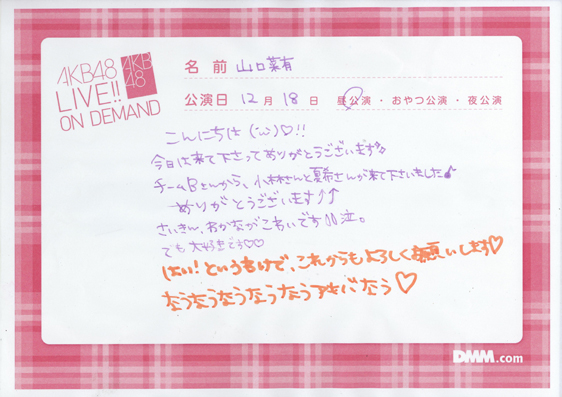 AKB48
LIVE!!
ON DEMAND
AKB
48
名前 山口菜有
公演日 12月 18日 昼公演・おやつ公演・夜公演
こんにちは (・ω・)♡!!
今日は来て下さってありがとうございます
チームBさんから、小林さんと夏希さんが来て下さいました♪
ありがとうございます↑↑
さいきん、おかながこわいです 泣。
でも大好きです♡♡
はい!というわけで、これからもよろしくお願いします♡
なうなうなうなうなうアキバなう♡
DMM.com